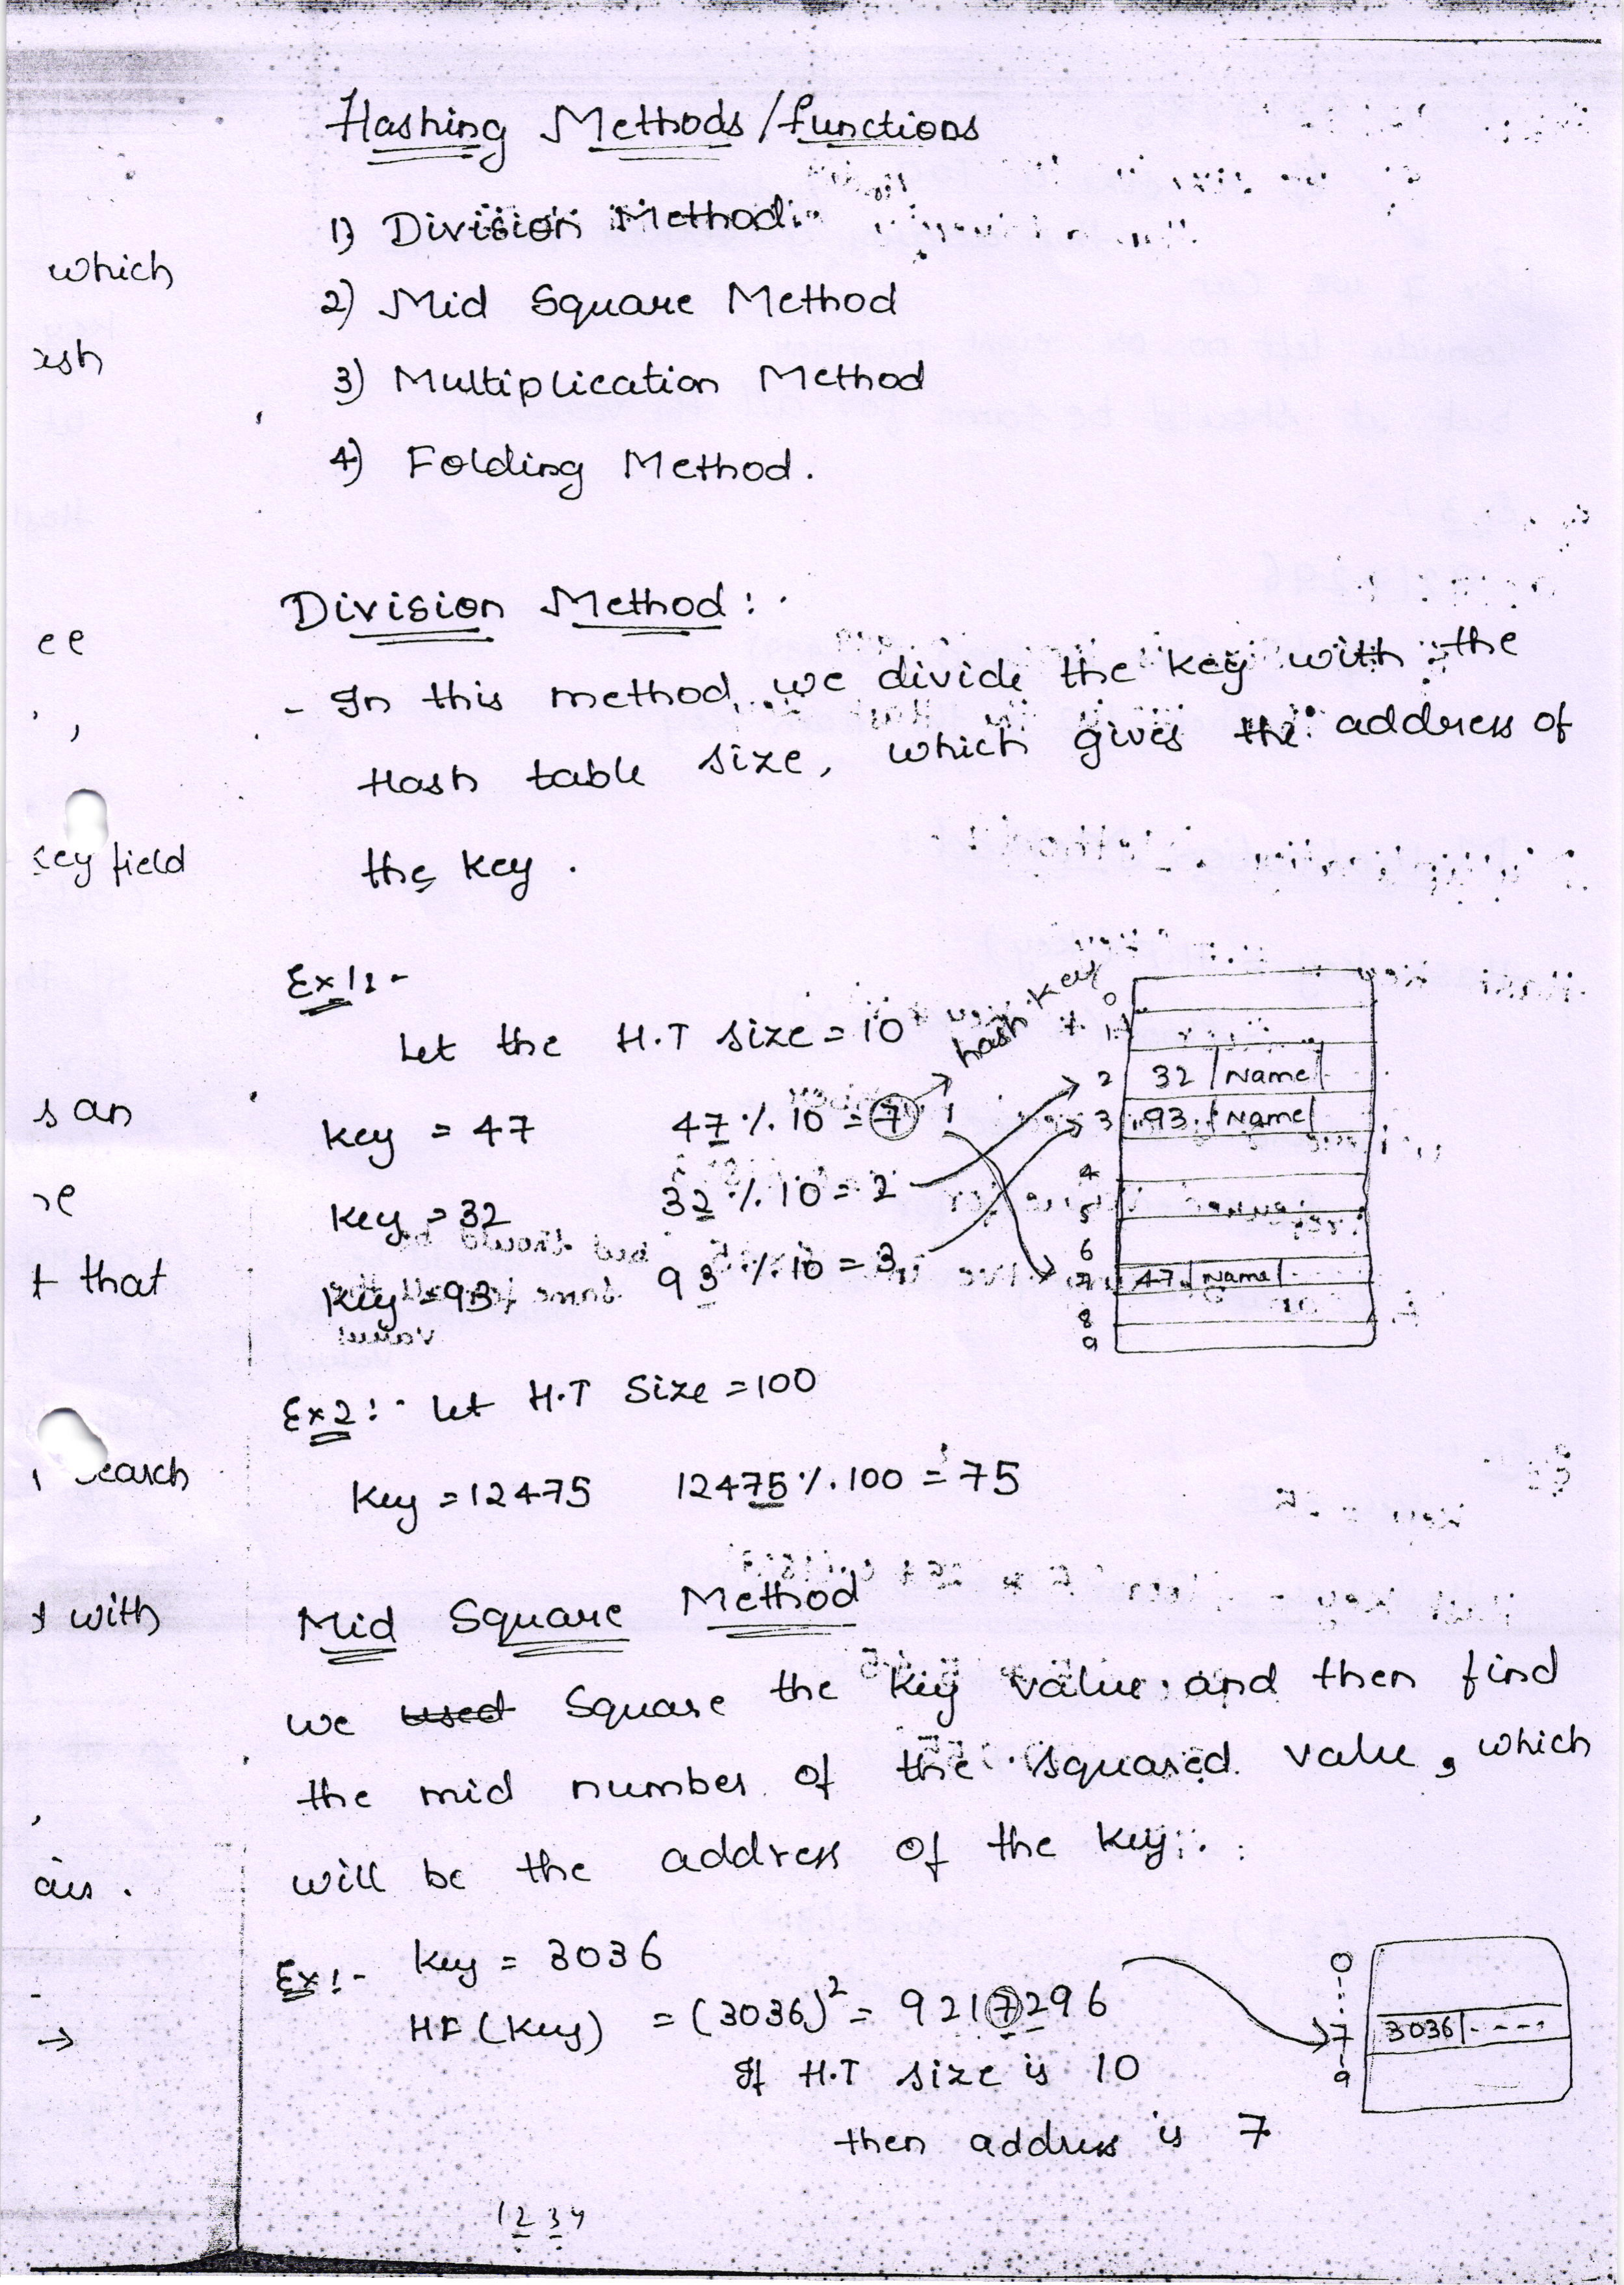 Hashing Methods/functions
1) Division Method
2) Mid Square Method
3) Multiplication Method
4) Folding Method.
which
ee
key field
s an
t that
search
with
Division Method :
- In this method, we divide the key with the
Hash table size, which gives the address of
the key.
Ex 1:-
Let the H.T size = 10
hash key
key = 47 47 % 10 = 7
key = 32 32 % 10 = 2
key = 93 93 % 10 = 3
0
1
2 32 Name
3 93 Name
4
5
6
7 47 Name
8
9
Ex 2:- Let H.T Size = 100
Key = 12475 12475 % 100 = 75
Mid Square Method
we used Square the key value and then find
the mid number of the squared value, which
will be the address of the key.
Ex:- key = 3036
HF (key) = (3036)² = 9217296
If H.T size is 10
then address is 7
0
7 3036 ----
9
1234